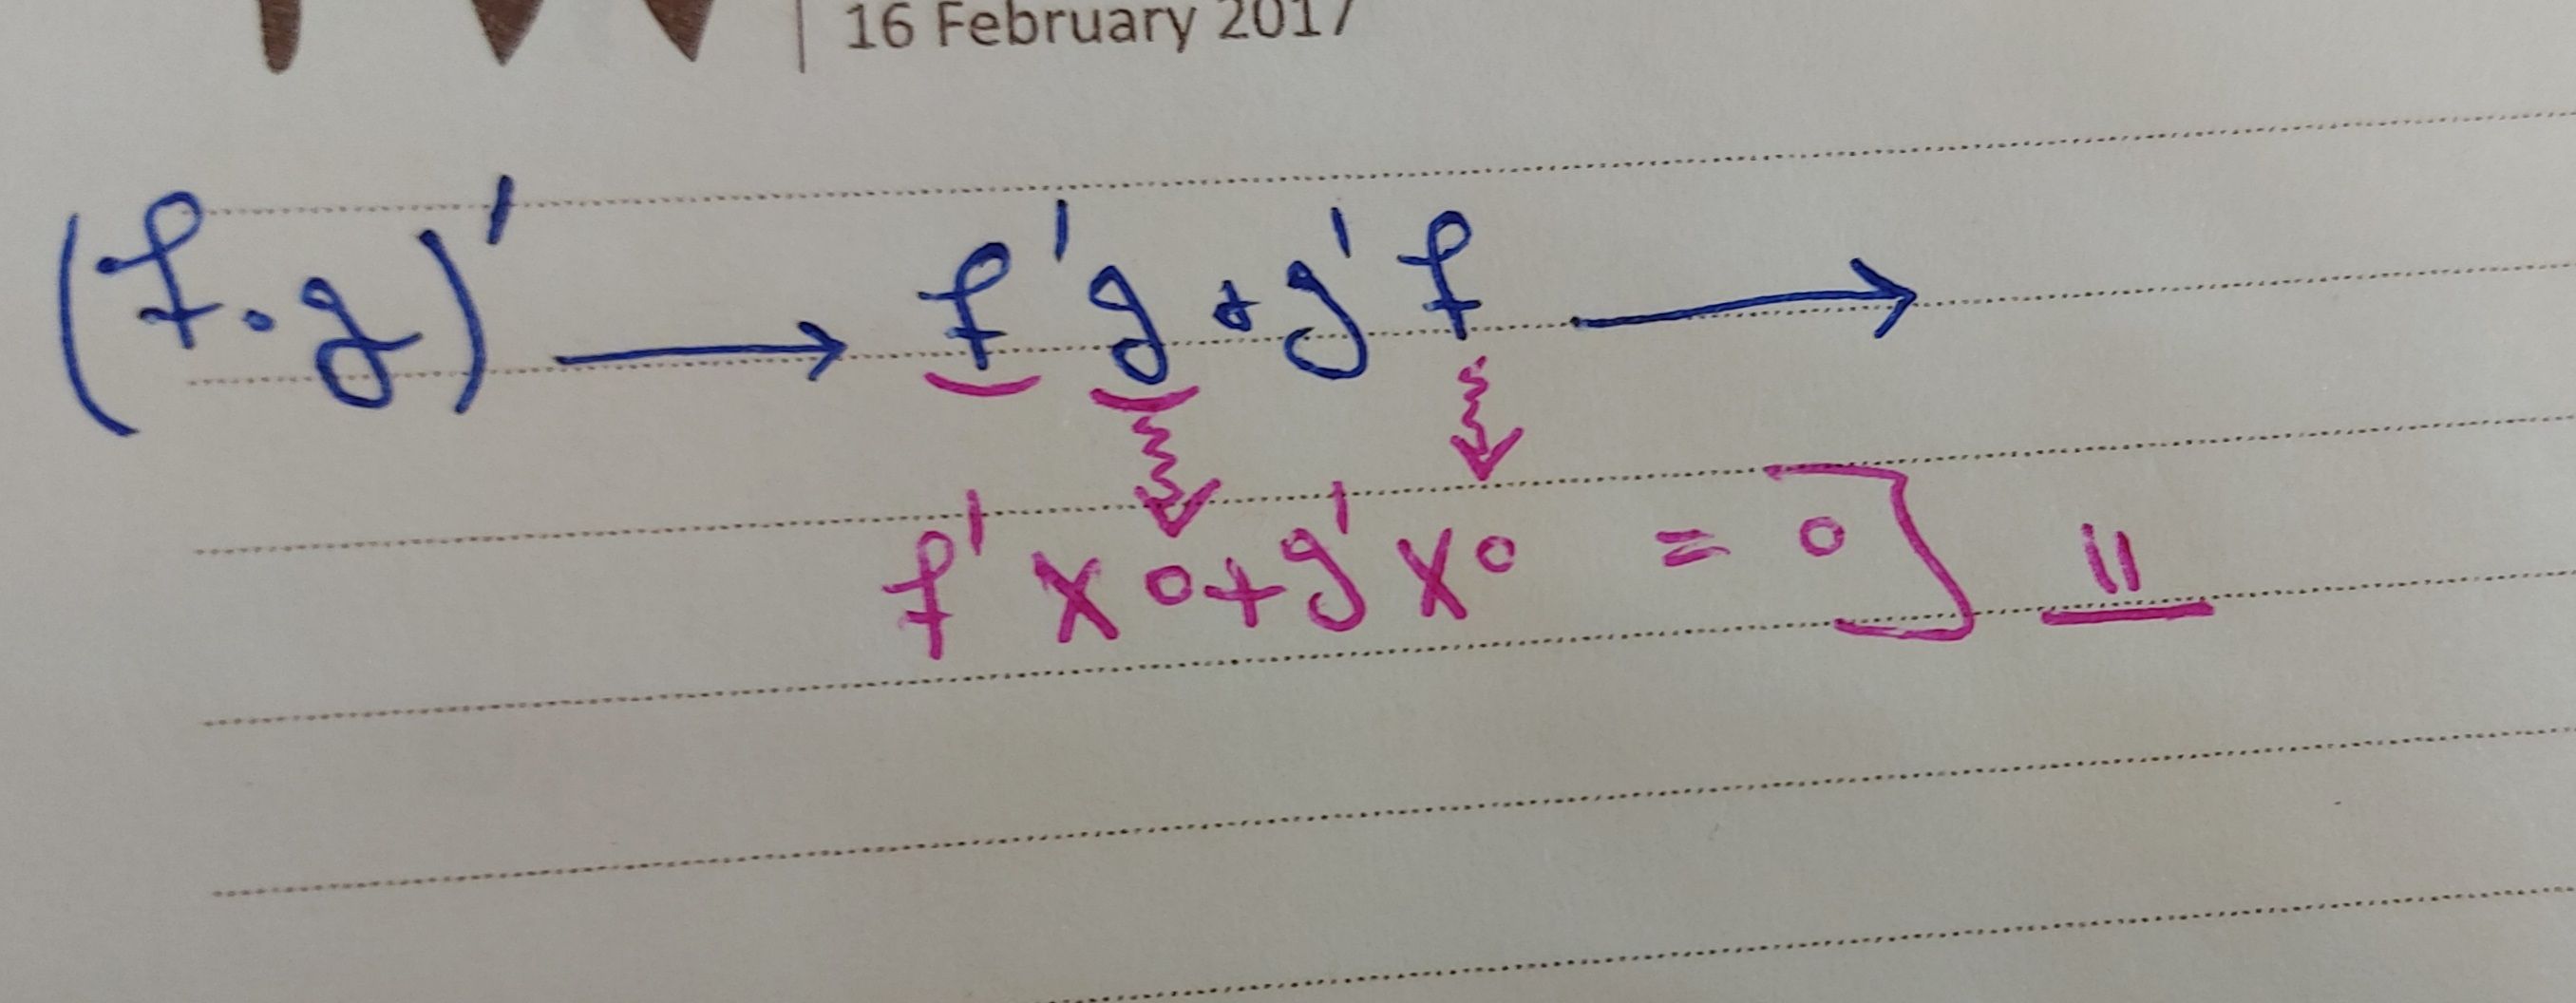 16 February 2017
(f.g)' → f'g+g'f →
f'×0+g'×0 = 0] "